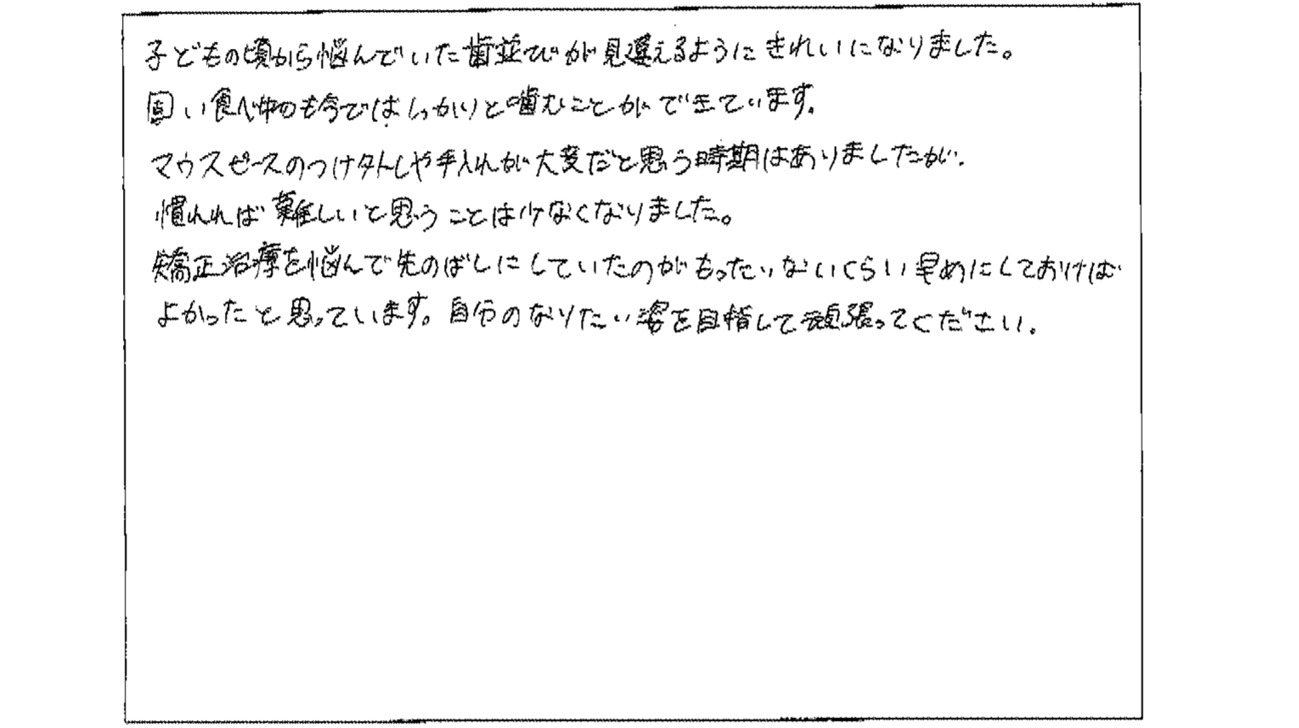 子どもの頃から悩んでいた歯並びが見違えるようにきれいになりました。
固い食べ物も今ではしっかりと噛むことができています。
マウスピースのつけ外しや手入れが大変だと思う時期はありましたが、
慣れれば難しいと思うことは少なくなりました。
矯正治療を悩んで先のばしにしていたのがもったいないくらい早めにしておけば
よかったと思っています。自分のなりたい姿を目指して頑張ってください。